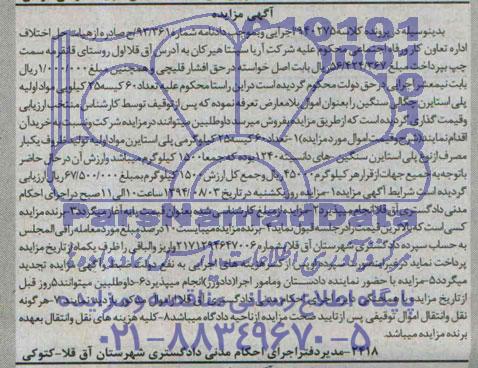 آگهی مزایده
بدینوسیله در پرونده کلاسه ۹۴۰۲۷۵ اجرایی و بموجب دادنامه شماره ۹۳/۳۶۱ ح صادره از هیات حل اختلاف
اداره تعاون کار و رفاه اجتماعی محکوم علیه شرکت آریا سینتا هیرکان به آدرس آق قلا اول روستای قانقرمه سمت
چپ بپرداخت مبلغ ۵۶/۴۲۴/۳۶۷ ریال بابت اصل خواسته در حق افشار قلیچی و همچنین مبلغ ۱/۰۰۰/۰۰۰ ریال
بابت نیمعشر اجرایی در حق دولت محکوم گردیده است در این راستا محکوم علیه تعداد ۶۰ کیسه ۲۵ کیلویی مواد اولیه
پلی استایرن چگالی سنگین را بعنوان اموال بلامعارض تعرفه نموده که پس از توقیف توسط کارشناس منتخب ارزیابی
و قیمت گذاری گردیده است که از طریق مزایده بفروش میرسد داوطلبین میتوانند در مزایده شرکت و نسبت به خرید آن
اقدام نمایند (شرح و قیمت اموال مورد مزایده) ۱- تعداد ۶۰ کیسه ۲۵ کیلوگرمی پلی استایرن مواد اولیه تولید ظروف یکبار
مصرف از نوع پلی استایرن سنگین - های دانسیته ۱۲۴۰ بوده که جمعا ۱۵۰۰ کیلوگرم میباشد و ارزش آن در حال حاضر
با توجه به جمیع جهات از قرار هر کیلوگرم ۴۵۰۰۰ ریال و جمع کل ارزش ۱۵۰۰ کیلوگرم بمبلغ ۶۷/۵۰۰/۰۰۰ ریال ارزیابی
گردیده است شرایط آگهی مزایده ۱- مزایده روز یکشنبه در تاریخ ۱۳۹۴/۰۸/۰۳ ساعت ۱۰ الی ۱۱ صبح در اجرای احکام
مدنی دادگستری آق قلا انجام میپذیرد ۲- مزایده از مبلغ کارشناسی شده بعنوان قیمت پایه آغاز میگردد ۳- برنده مزایده
کسی است که بالاترین قیمت را در جلسه قبول نماید ۴- برنده مزایده میبایست ۱۰ درصد مبلغ مورد معامله را فی المجلس
به حساب سپرده دادگستری شهرستان آق قلا بشماره ۲۱۷۱۲۹۴۶۴۷۰۰۶ واریز و الباقی را ظرف یکماه از تاریخ مزایده
پرداخت نماید در غیر اینصورت سپرده پس از کسر هزینه های اجرایی به نفع دولت ضبط و آگهی مزایده تجدید
میگردد ۵- مزایده با حضور نماینده دادستان و مامور اجرا (دادورز) انجام میپذیرد ۶- داوطلبین میتوانند ۵ روز قبل
از تاریخ مزایده با هماهنگی دفتر اجرای احکام مدنی دادگستری آق قلا از اموال مورد مزایده بازدید نمایند ۷- هرگونه
نقل و انتقال اموال توقیفی پس از تایید صحت مزایده از ناحیه دادگاه میباشد ۸- کلیه هزینه های نقل و انتقال بعهده
برنده مزایده میباشد.
۲۴۱۸- مدیر دفتر اجرای احکام مدنی دادگستری شهرستان آق قلا - کتوکی
۰۲۱-۸۸۳۴۹۶۷۰-۵